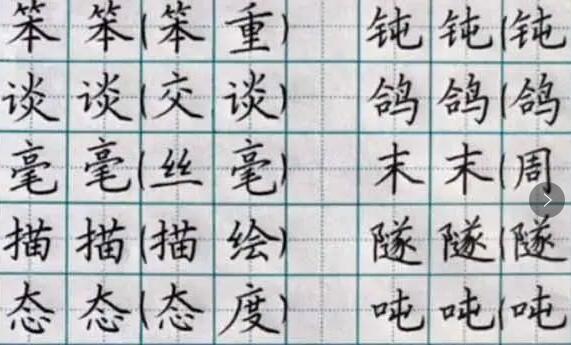 笨笨(笨重) 钝钝(钝
谈谈(交谈) 鸽鸽(鸽
毫毫(丝毫) 末末(周
描描(描绘) 隧隧(隧
态态(态度) 吨吨(吨